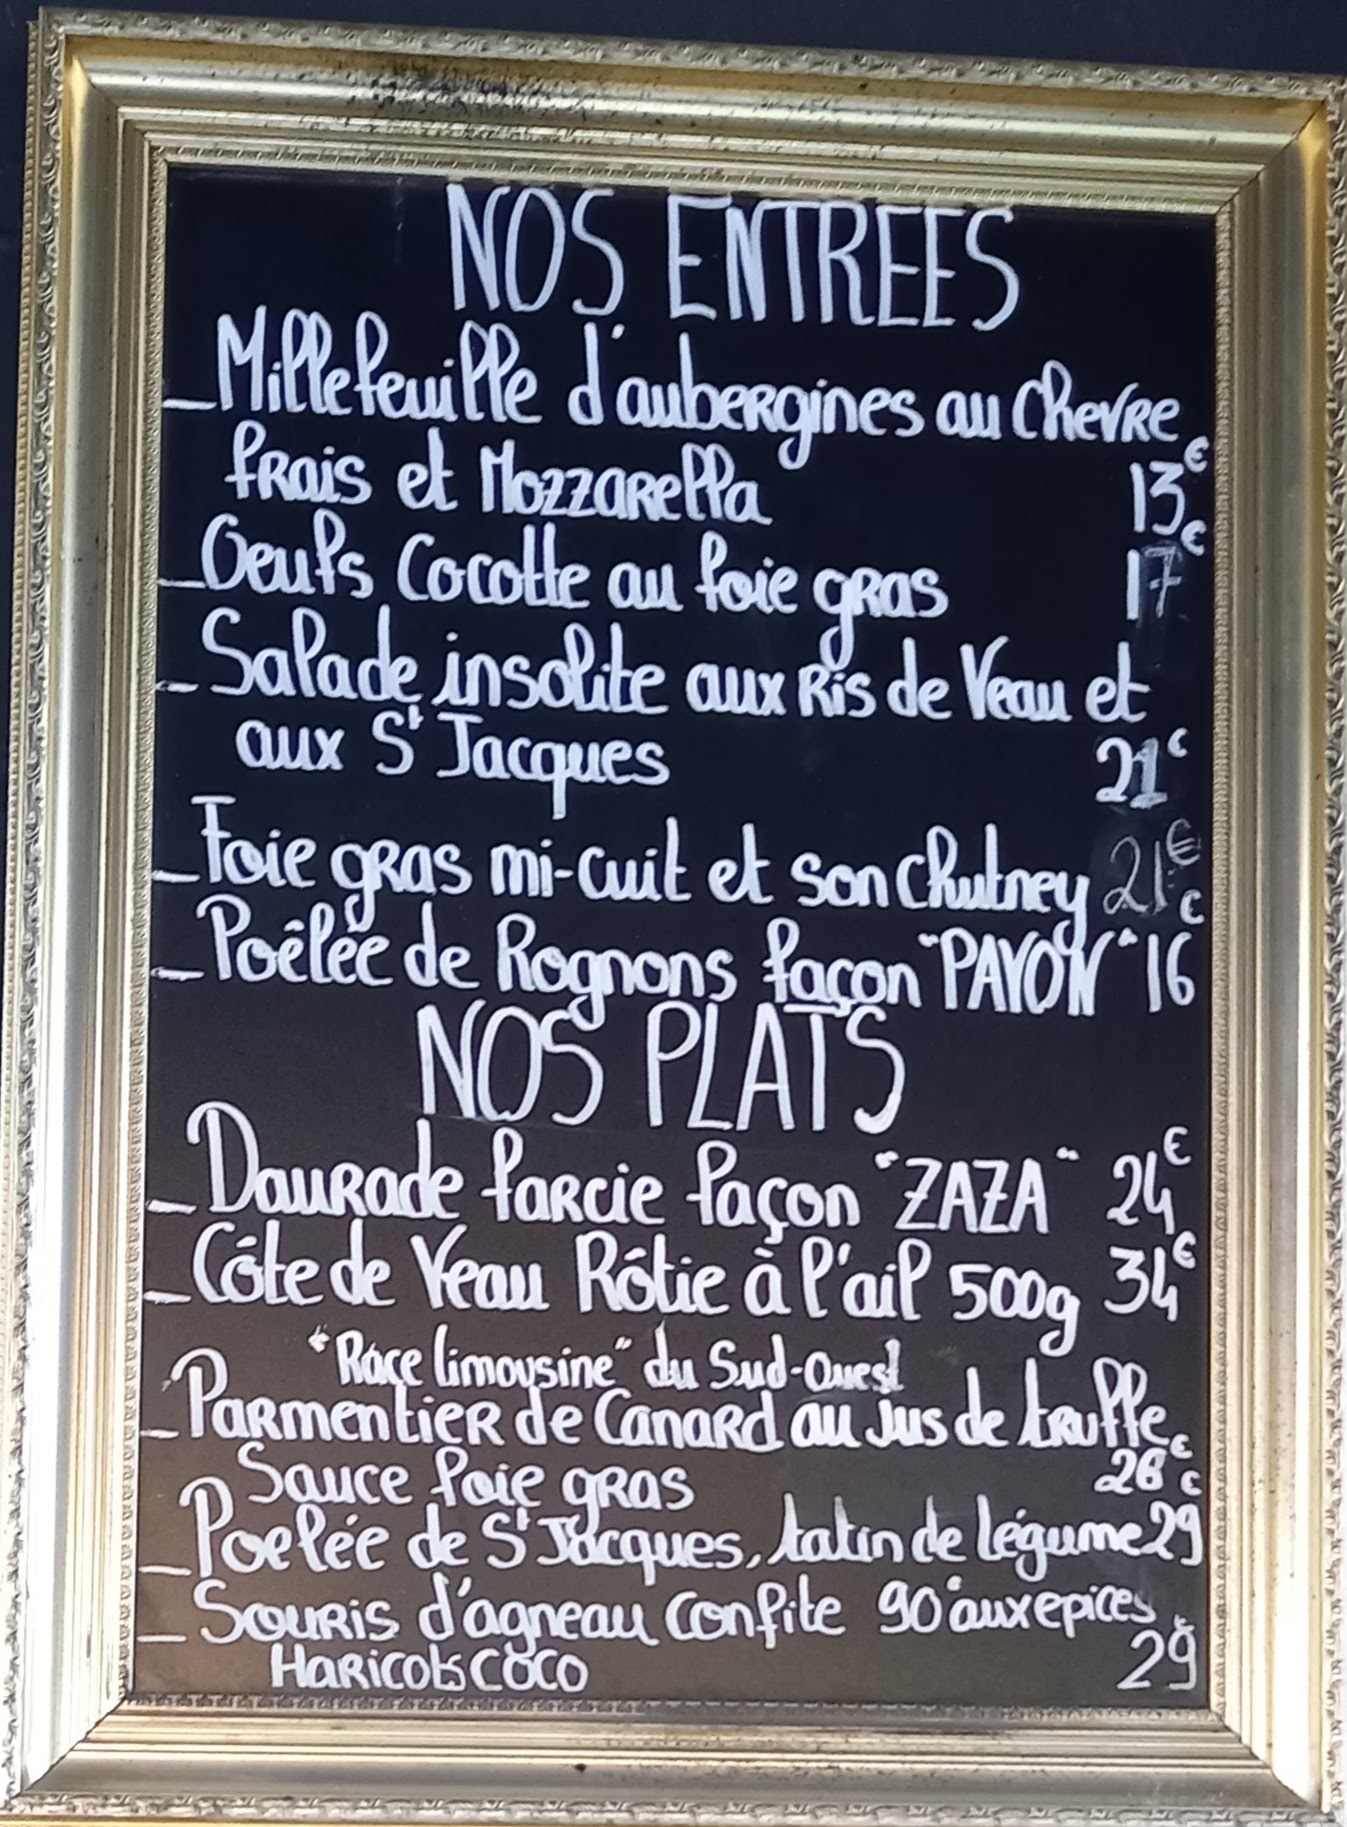 NOS ENTREES
_ Millefeuille d'aubergines au chevre
frais et Mozzarella 13€
_ Oeufs Cocotte au foie gras 17€
_ Salade insolite aux Ris de Veau et
aux St Jacques 21€
_ Foie gras mi-cuit et son chutney 21€
_ Poêlée de Rognons façon "PAVON" 16€
NOS PLATS
_ Daurade farcie façon "ZAZA" 24€
_ Côte de Veau Rôtie à l'ail 500g 34€
"Race limousine" du Sud-Ouest
_ Parmentier de Canard au jus de truffe
Sauce foie gras €
_ Poelée de St Jacques, tatin de légume 29€
_ Souris d'agneau confite 90° aux epices
Haricots coco 29€